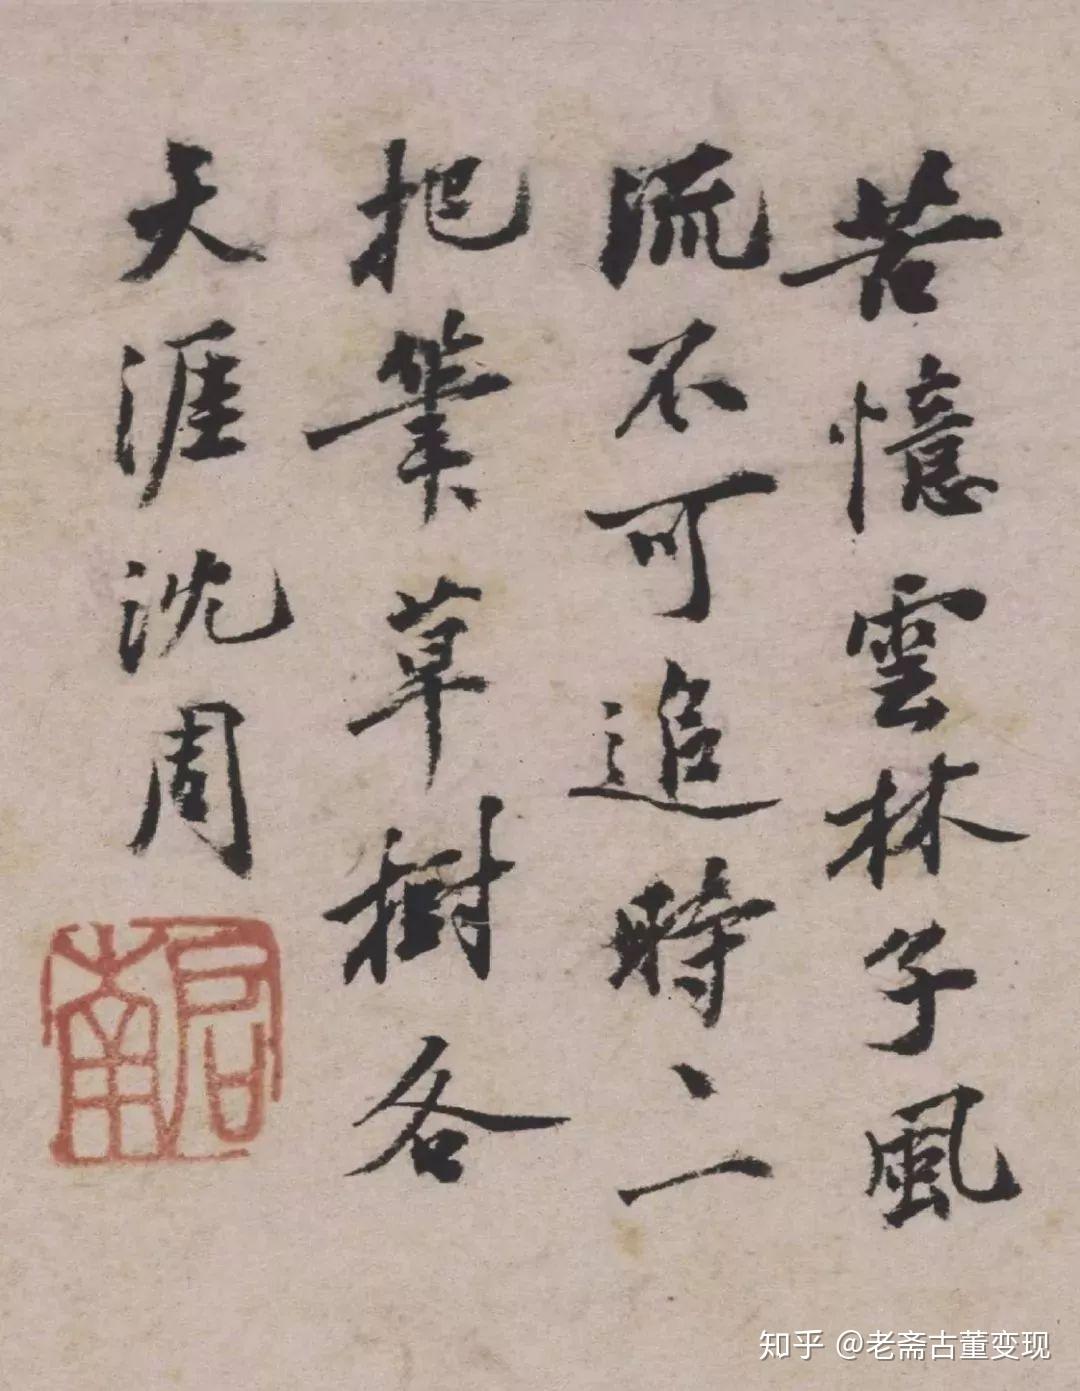 苦憶雲林子風
流不可追時、一
把筆草樹各
天涯沈周
启南
知乎 @老斋古董变现